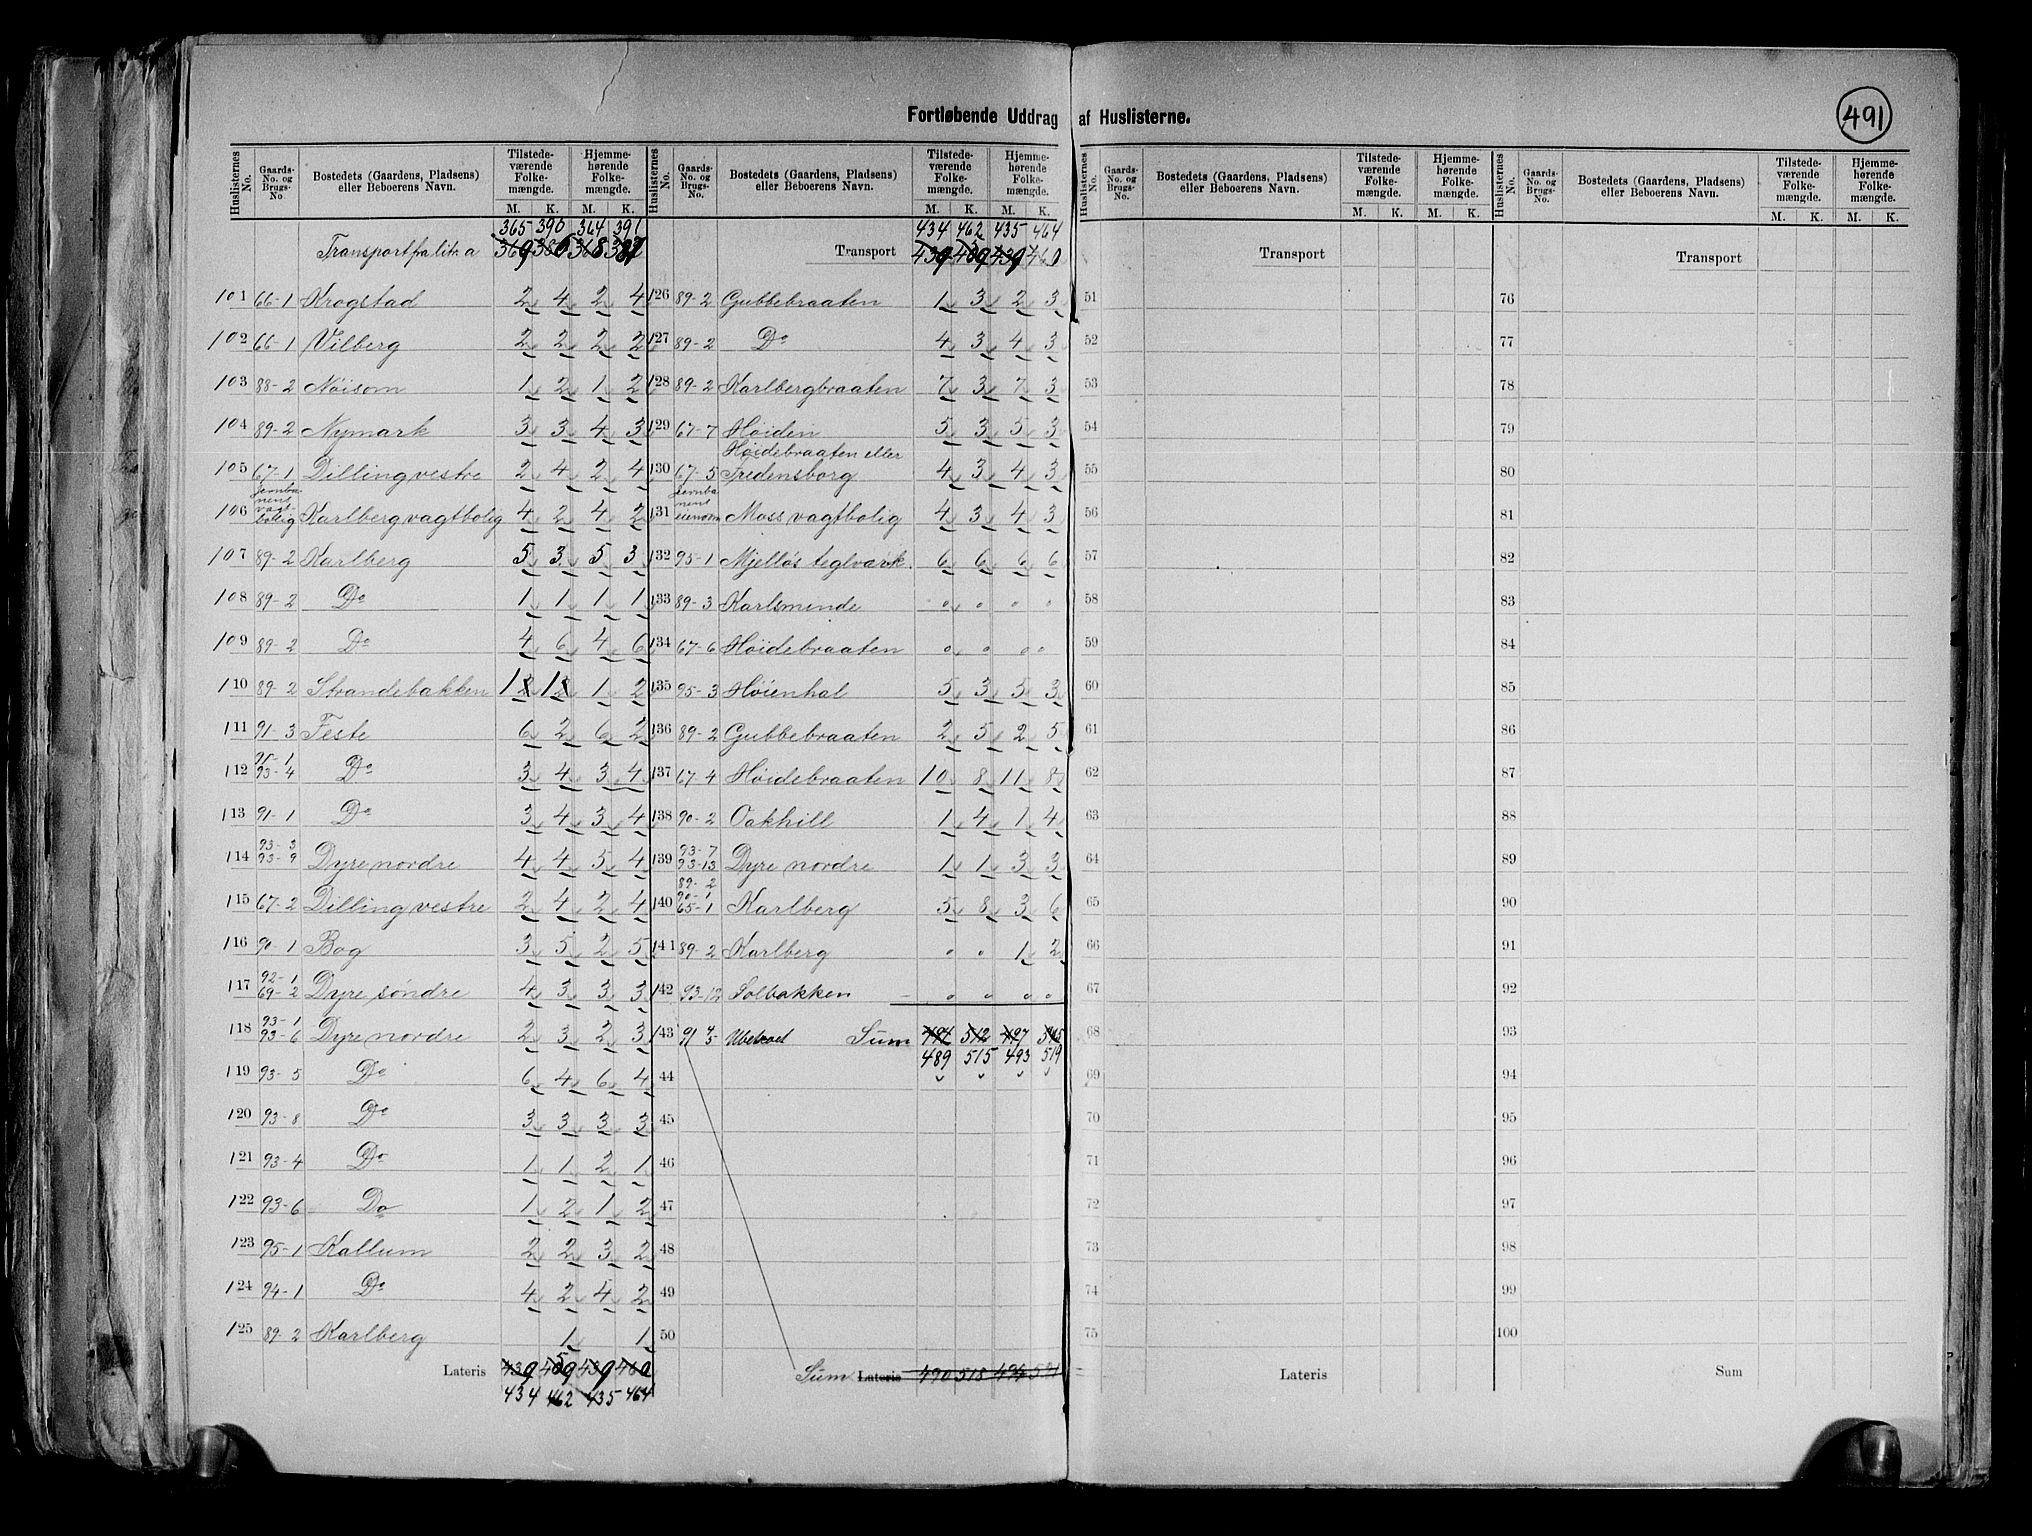 Fortløbende Uddrag af Huslisterne.
491
Huslisternes No. | Gaards-No. og Brugs-No | Bostedets (Gaardens, Pladsens) eller Beboerens Navn. | Tilstedeværende Folkemængde. M. K. | Hjemmehørende Folkemængde. M. K.
365 390 364 391
Transport fra litra a
101 66-1 Krogstad 2 4 2 4
102 66-1 Vilberg 2 2 2 2
103 88-2 Nøisom 1 2 1 2
104 89-2 Nymark 3 3 4 3
105 67-1 Dilling vestre 2 4 2 4
106 Jernbanens vagtbolig Karlberg vagtbolig 4 2 4 2
107 89-2 Karlberg 5 3 5 3
108 89-2 Do 1 1 1 1
109 89-2 Do 4 6 4 6
110 89-2 Strandebakken 1 1 1 2
111 91-3 Feste 6 2 6 2
112 91-1 93-4 Do 3 4 3 4
113 91-1 Do 3 4 3 4
114 93-3 93-9 Dyre nordre 4 4 5 4
115 67-2 Dilling vestre 2 4 2 4
116 90-1 Bog 3 5 2 5
117 92-1 69-2 Dyre söndre 4 3 3 3
118 93-1 93-6 Dyre nordre 2 3 2 3
119 93-5 Do 6 4 6 4
120 93-8 Do 3 3 3 3
121 93-4 Do 1 1 2 1
122 93-6 Do 1 2 1 2
123 95-1 Kallum 2 2 3 2
124 94-1 Do 4 2 4 2
125 89-2 Karlberg 1 1
Lateris 439 459 439 460
434 462 435 464
Huslisternes No. | Gaards-No. og Brugs-No. | Bostedets (Gaardens, Pladsens) eller Beboerens Navn. | Tilstedeværende Folkemængde. M. K. | Hjemmehørende Folkemængde. M. K.
434 462 435 464
Transport 439 459 439 460
126 89-2 Gubbebraaten 1 3 2 3
127 89-2 Do 4 3 4 3
128 89-2 Karlbergbraaten 7 3 7 3
129 67-7 Høiden 5 3 5 3
Høidebraaten eller
130 67-5 Fredensborg 4 3 4 3
131 Jernbanens eiendom Moss vagtbolig 4 3 4 3
132 95-1 Mjellös teglværk 6 6 6 6
133 89-3 Karlsminde " " " "
134 67-6 Høidebraaten " " " "
135 95-3 Høienhal 5 3 5 3
136 89-2 Gubbebraaten 2 5 2 5
137 67-4 Høidebraaten 10 8 11 8
138 90-2 Oakhill 1 4 1 4
139 93-7 93-13 Dyre nordre 1 1 3 3
140 89-2 90-1 65-1 Karlberg 5 8 3 6
141 89-2 Karlberg " " 1 2
142 93-12 Solbakken " " " "
143 91 4 5 Ubeboet Sum 494 512 497 515
489 515 493 519
44
45
46
47
48
49
50
Sum Lateris 490 518 494 521
Huslisternes No. | Gaards-No. og Brugs-No. | Bostedets (Gaardens, Pladsens) eller Beboerens Navn. | Tilstedeværende Folkemængde. M. K. | Hjemmehørende Folkemængde. M. K.
Transport
51
52
53
54
55
56
57
58
59
60
61
62
63
64
65
66
67
68
69
70
71
72
73
74
75
Lateris
Huslisternes No. | Gaards-No. og Brugs-No. | Bostedets (Gaardens, Pladsens) eller Beboerens Navn. | Tilstedeværende Folkemængde. M. K. | Hjemmehørende Folkemængde. M. K.
Transport
76
77
78
79
80
81
82
83
84
85
86
87
88
89
90
91
92
93
94
95
96
97
98
99
100
Sum